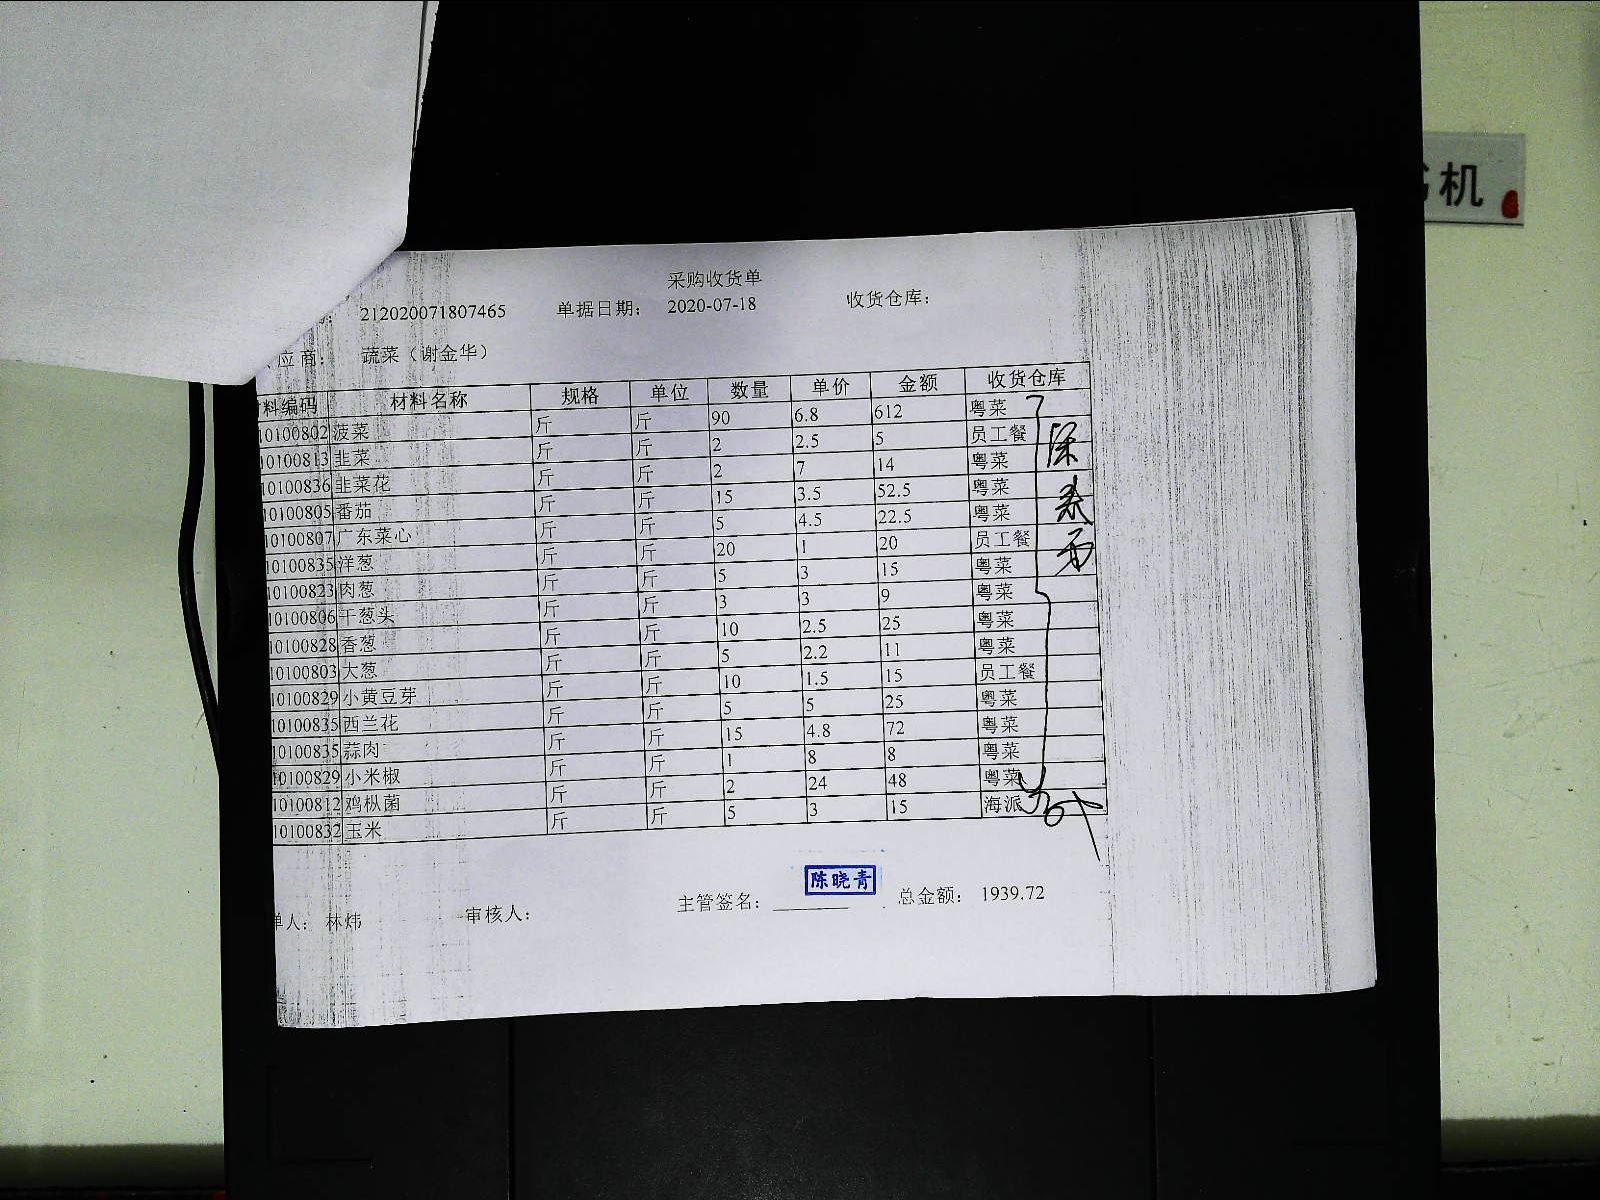 机
采购收货单
212020071807465 单据日期： 2020-07-18 收货仓库：
应商： 蔬菜（谢金华）
料编码 材料名称 规格 单位 数量 单价 金额 收货仓库
10100802 菠菜 斤 斤 90 6.8 612 粤菜
10100813 韭菜 斤 斤 2 2.5 5 员工餐
10100836 韭菜花 斤 斤 2 7 14 粤菜
10100805 番茄 斤 斤 15 3.5 52.5 粤菜
10100807 广东菜心 斤 斤 5 4.5 22.5 粤菜
10100835 洋葱 斤 斤 20 1 20 员工餐
10100823 肉葱 斤 斤 5 3 15 粤菜
10100806 干葱头 斤 斤 3 3 9 粤菜
10100828 香葱 斤 斤 10 2.5 25 粤菜
10100803 大葱 斤 斤 5 2.2 11 粤菜
10100829 小黄豆芽 斤 斤 10 1.5 15 员工餐
10100835 西兰花 斤 斤 5 5 25 粤菜
10100835 蒜肉 斤 斤 15 4.8 72 粤菜
10100829 小米椒 斤 斤 1 8 8 粤菜
10100812 鸡枞菌 斤 斤 2 24 48 粤菜
10100832 玉米 斤 斤 5 3 15 海派
单人： 林炜 审核人： 主管签名： 陈晓青 总金额： 1939.72